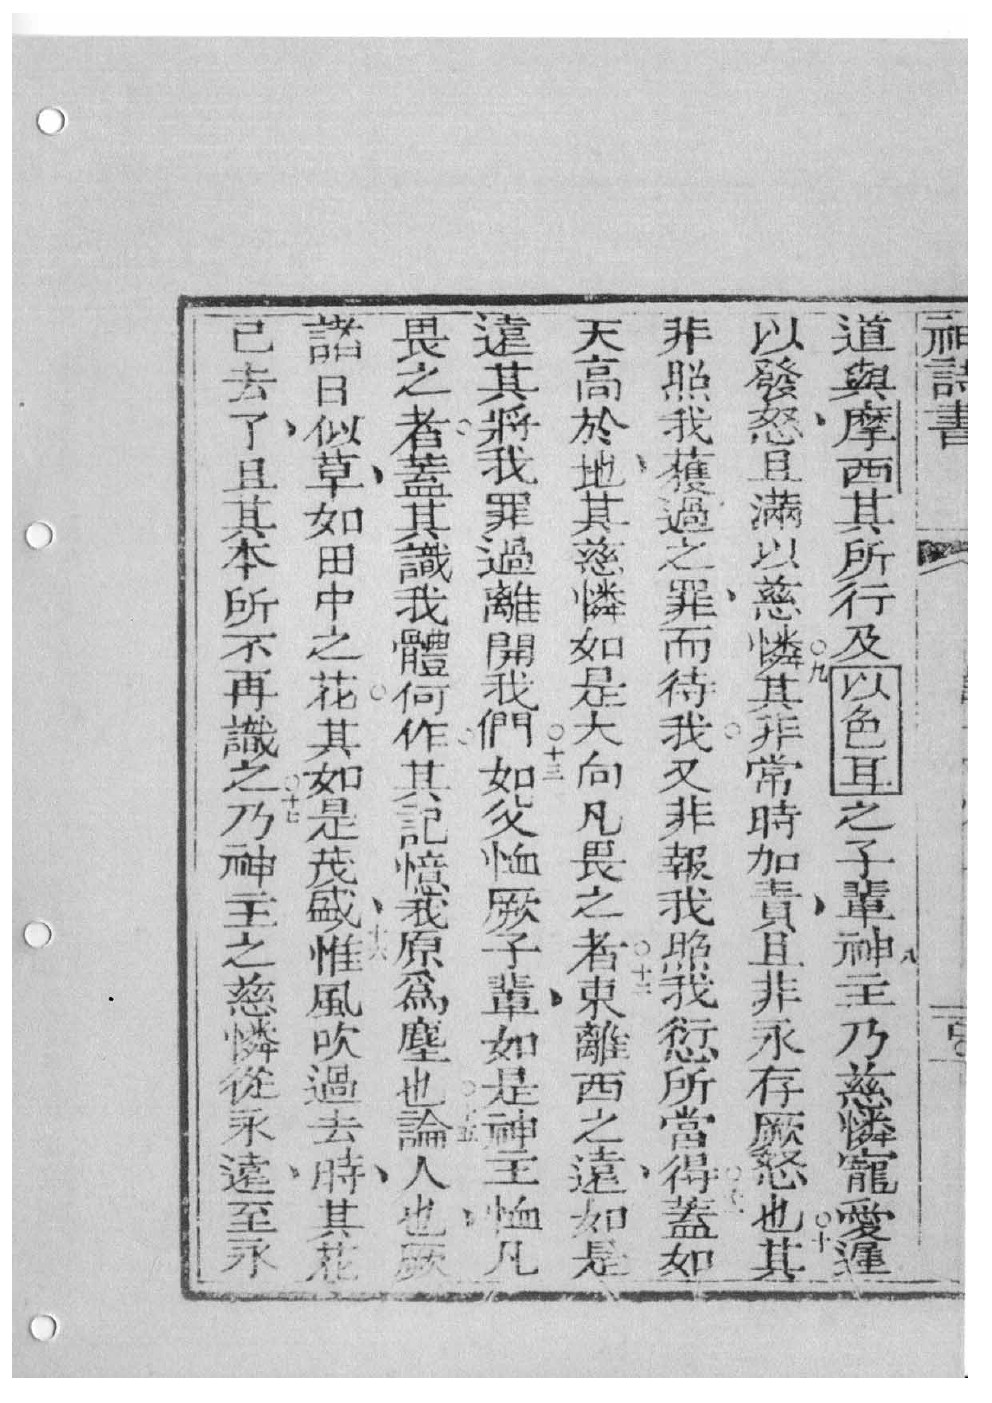 神詩書
道與摩西其所行及以色耳之子輩八神主乃慈憐寵愛遲
以發怒、且滿以慈憐○九其非常時加責、且非永存厥怒也○十其
非照我獲過之罪、而待我○又非報我照我愆所當得蓋如
天高於地、其慈憐如是大向凡畏之者○十二東離西之遠、如是
遠其將○我罪過離開我們○十三如父恤厥子輩、如是神主恤凡
畏之者○蓋其識我體何作○其記憶我原爲塵也○十五論人也、厥
諸日似草、如田中之花○其如是茂盛、十六惟風吹過去時、其花
已去了、且其本所不再識之○十七乃神主之慈憐從永遠、至永